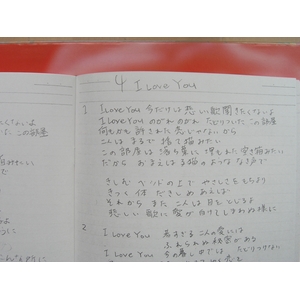 4 I Love You
1 I Love You 今だけは悲しい歌聞きたくないよ
I Love You のがれのがれ たどりついたこの部屋
何もかも許された恋じゃないから
二人はまるで捨て猫みたい
この部屋は落ち葉に埋もれた空き箱みたい
だから おまえは猫のような なき声で
きしむ ベッドの上で やさしさをもちより
きつく 体 だきしめ あえば
それから また 二人は 目をとじるよ
悲しい 歌に 愛が白けてしまわぬ様に
2 I Love You 若すぎる 二人の愛には
ふれられぬ秘密がある
I Love You 今の暮しの中では たどりつけない